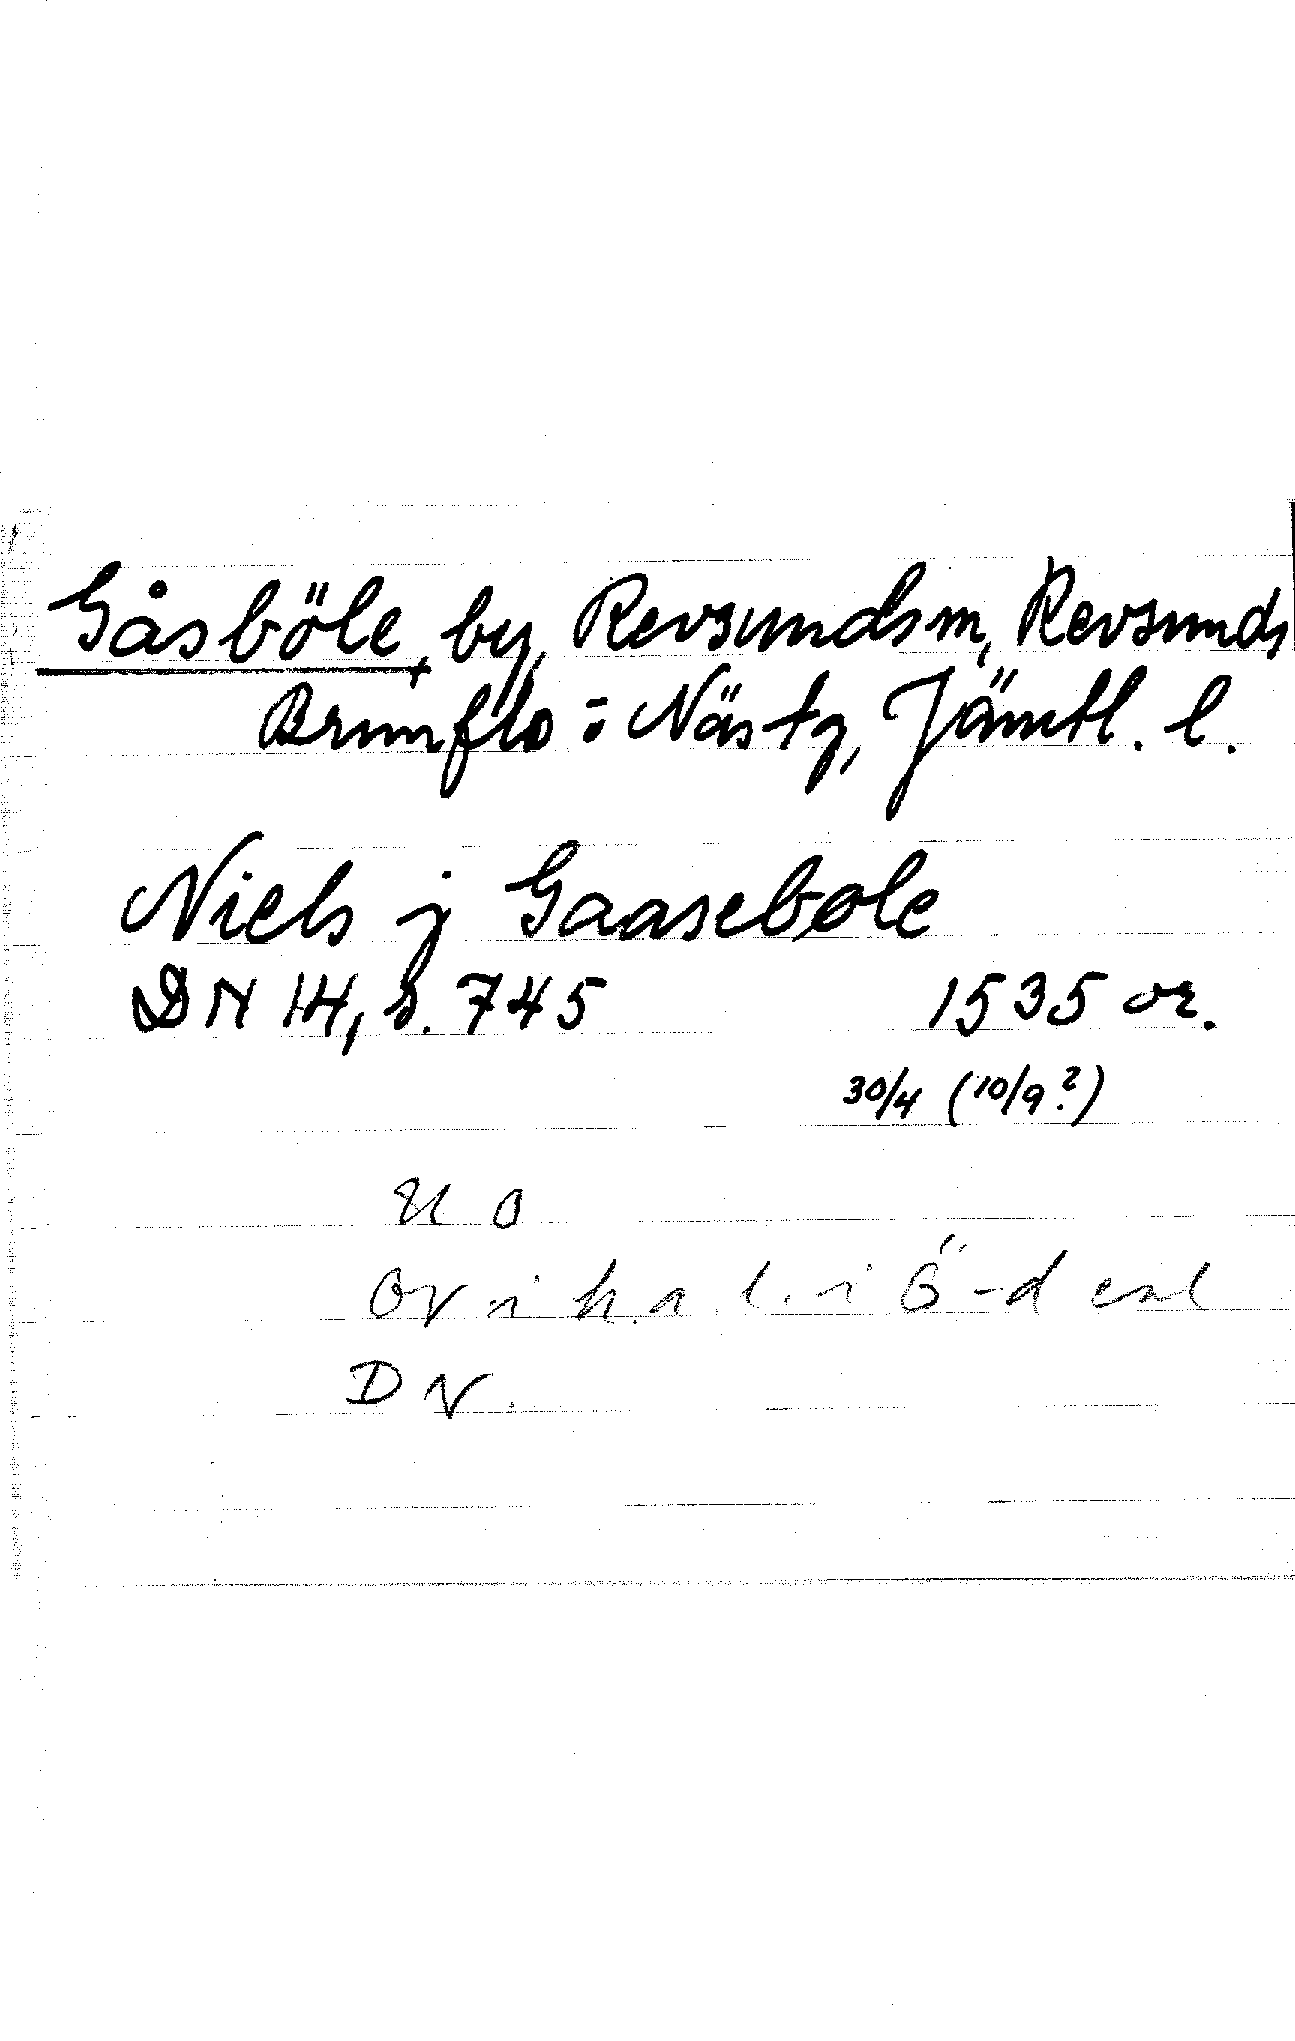 Gåsböle, by, Revsundsm, Revsunds
Brunflo o Näs tg, Jämtl. l.
Niels j Gaasebole
DN 14, s. 745 1535 or.
30/4 (10/9?)
DN.